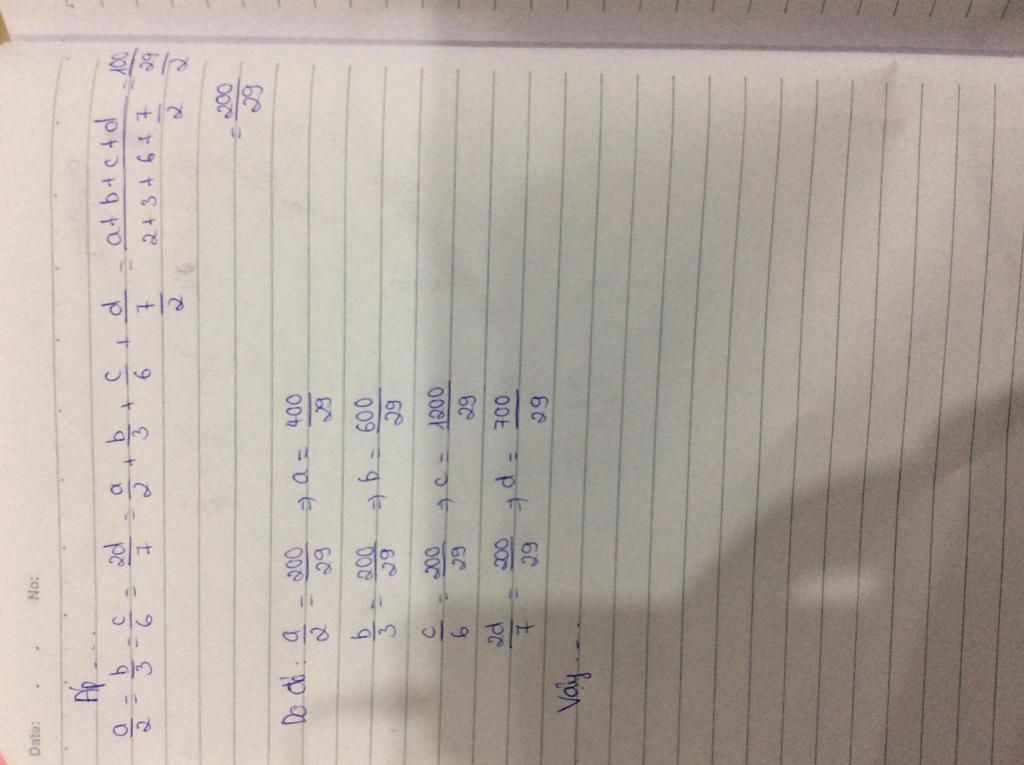 Date: No:
Áp....
a/2 = b/3 = c/6 = 2d/7 = a/2 + b/3 + c/6 + d/(7/2) = (a+b+c+d)/(2+3+6+7/2) = 100/(29/2)
= 200/29
Do đó: a/2 = 200/29 => a = 400/29
b/3 = 200/29 => b = 600/29
c/6 = 200/29 => c = 1200/29
2d/7 = 200/29 => d = 700/29
Vậy...